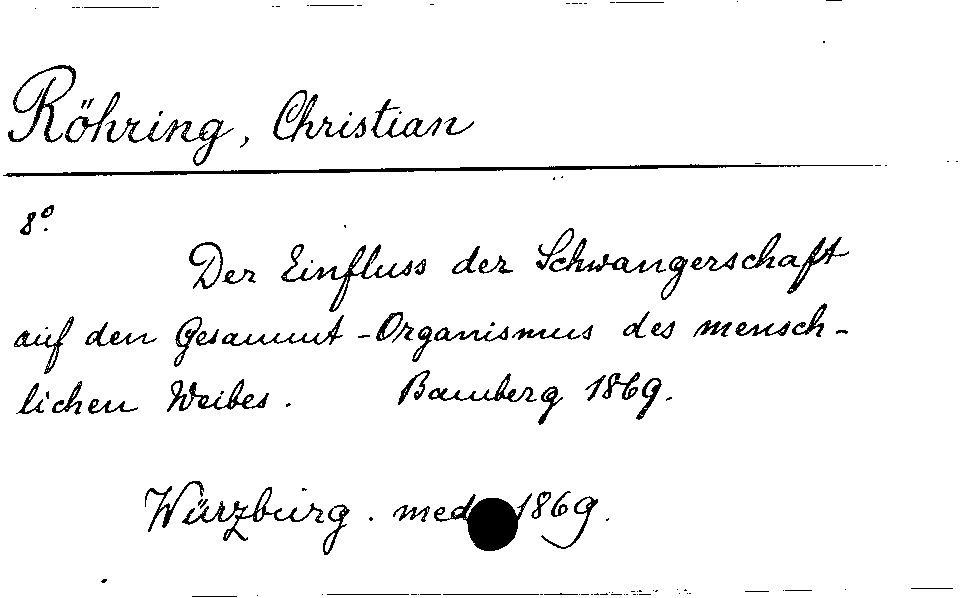 Röhring, Christian
8°.
Der Einfluss der Schwangerschaft
auf den Gesammt-Organismus des mensch-
lichen Weibes. Bamberg 1869.
Würzburg. med 1869.